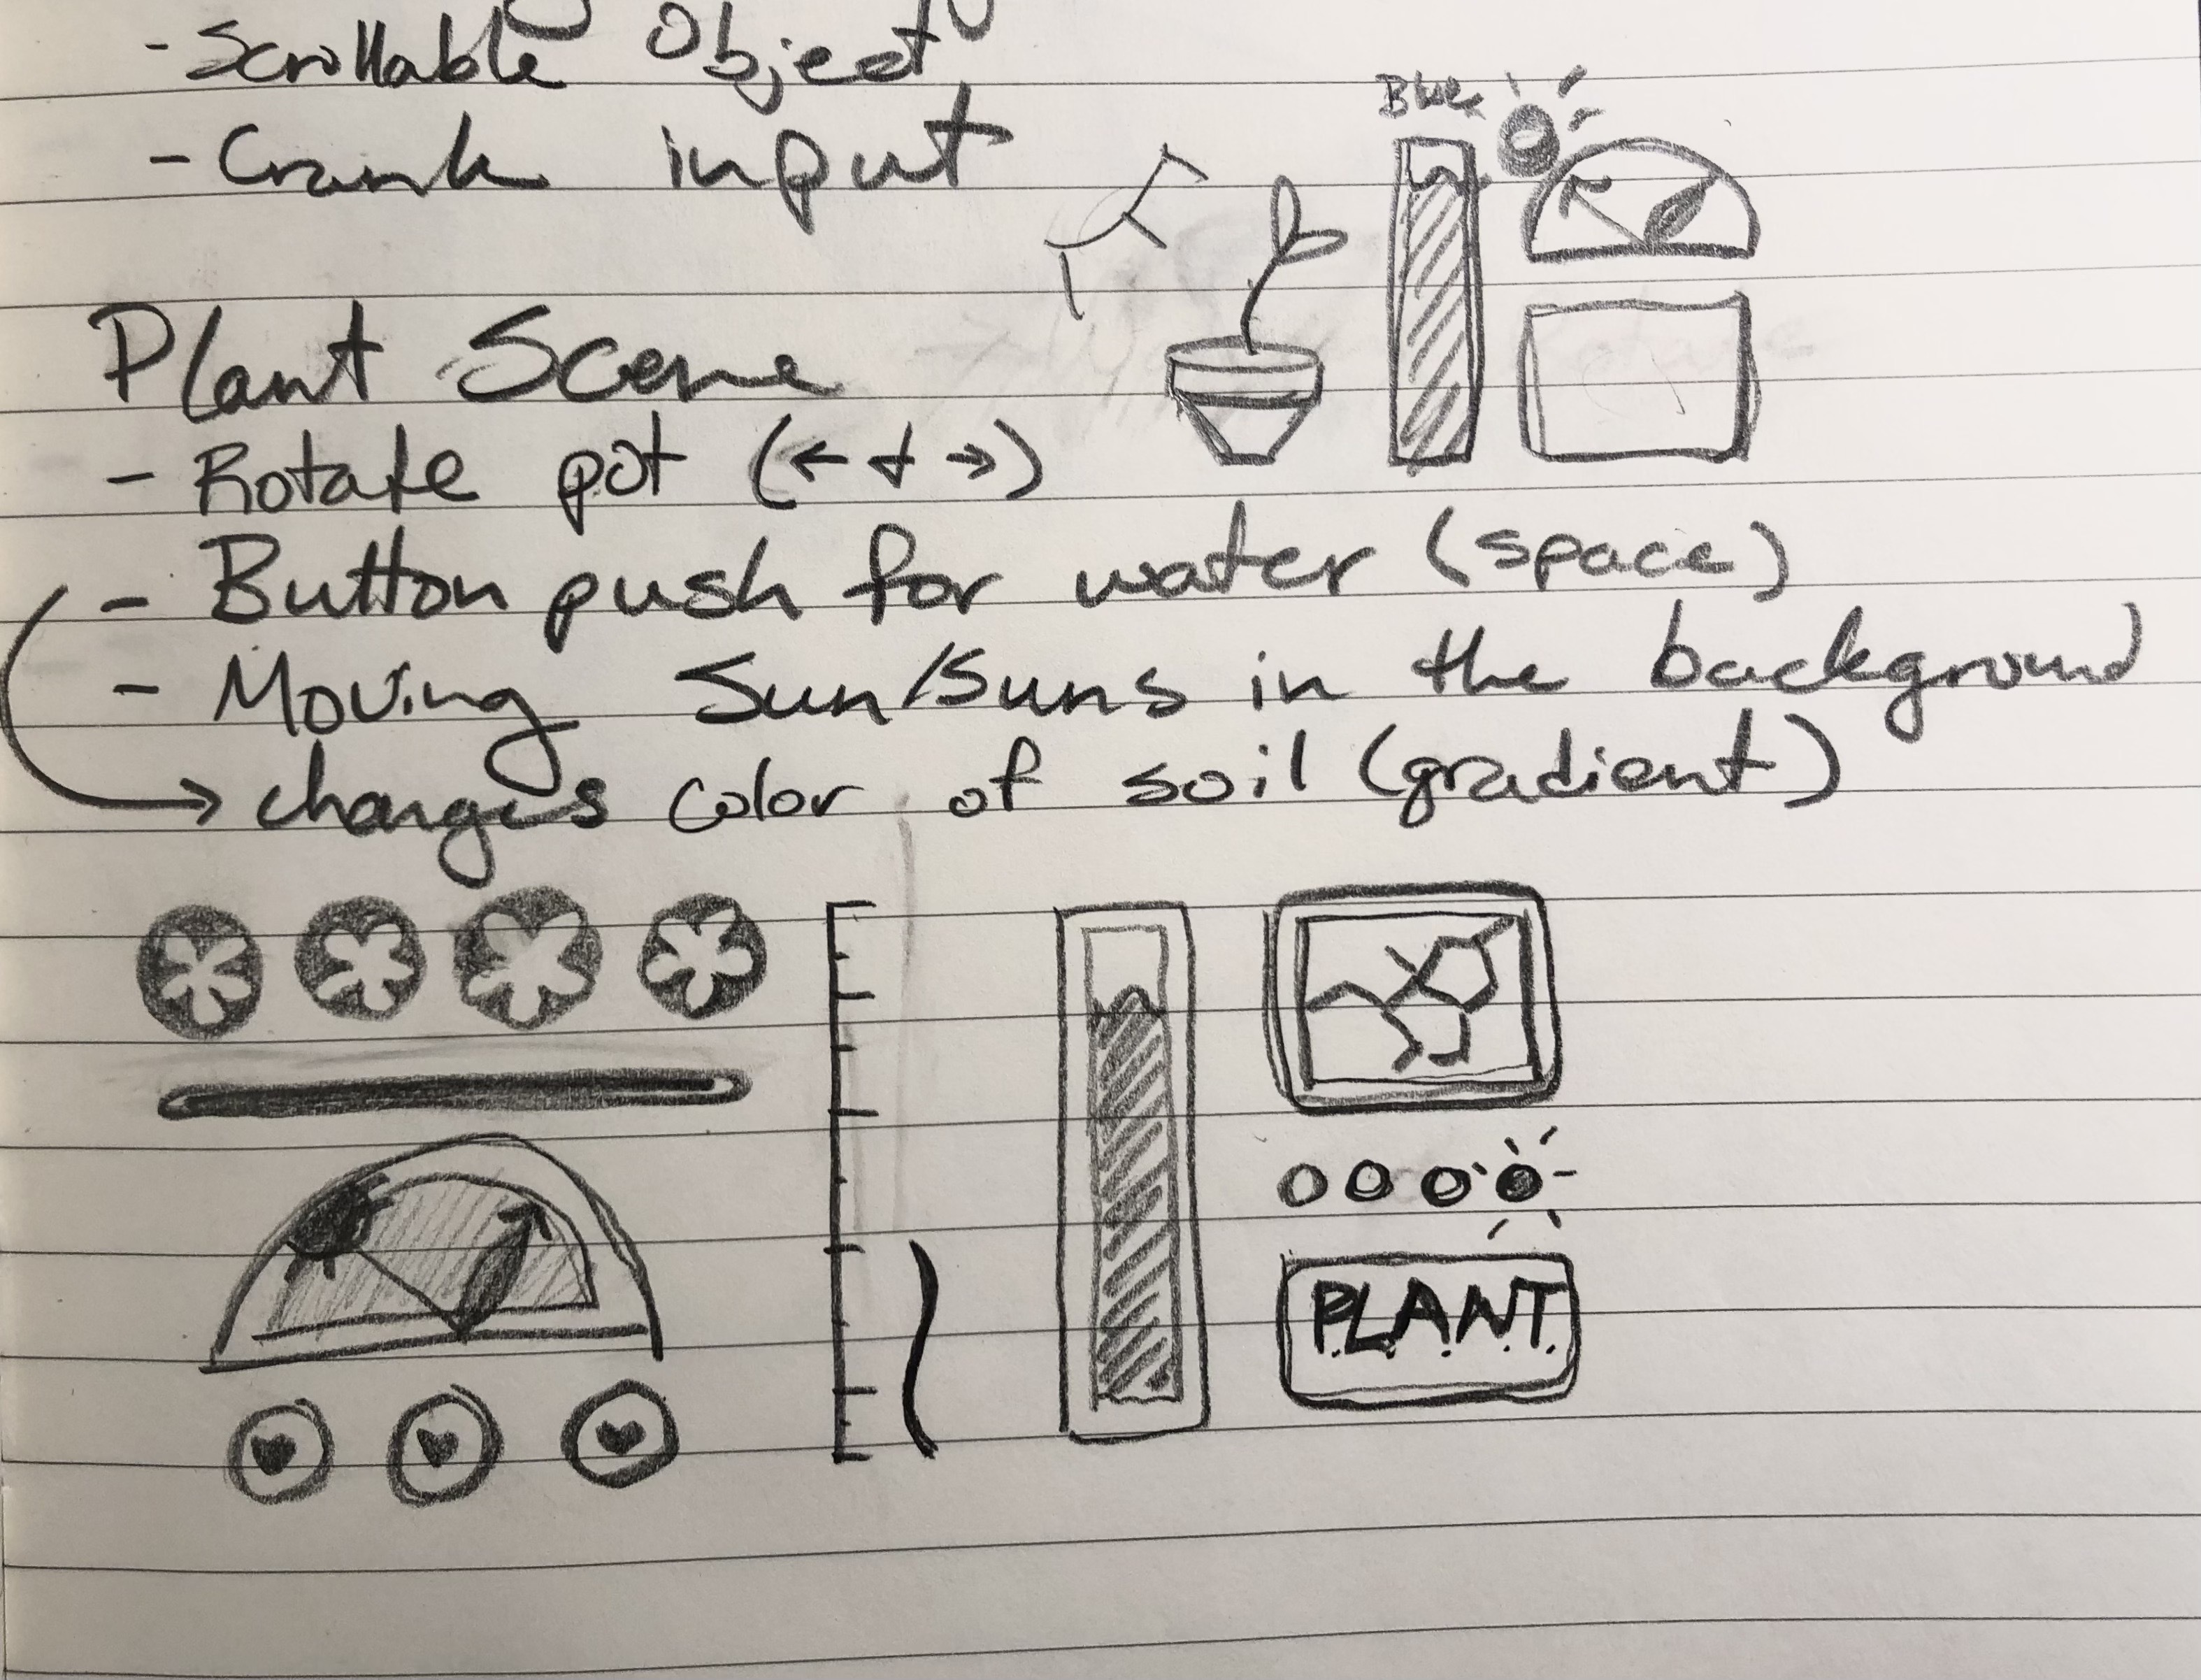 - Scrollable Object
- Crank input
Blue
Plant Scene
- Rotate pot (← + →)
- Button push for water (space)
- Moving Sun/Suns in the background
→ changes color of soil (gradient)
P.L.A.N.T.